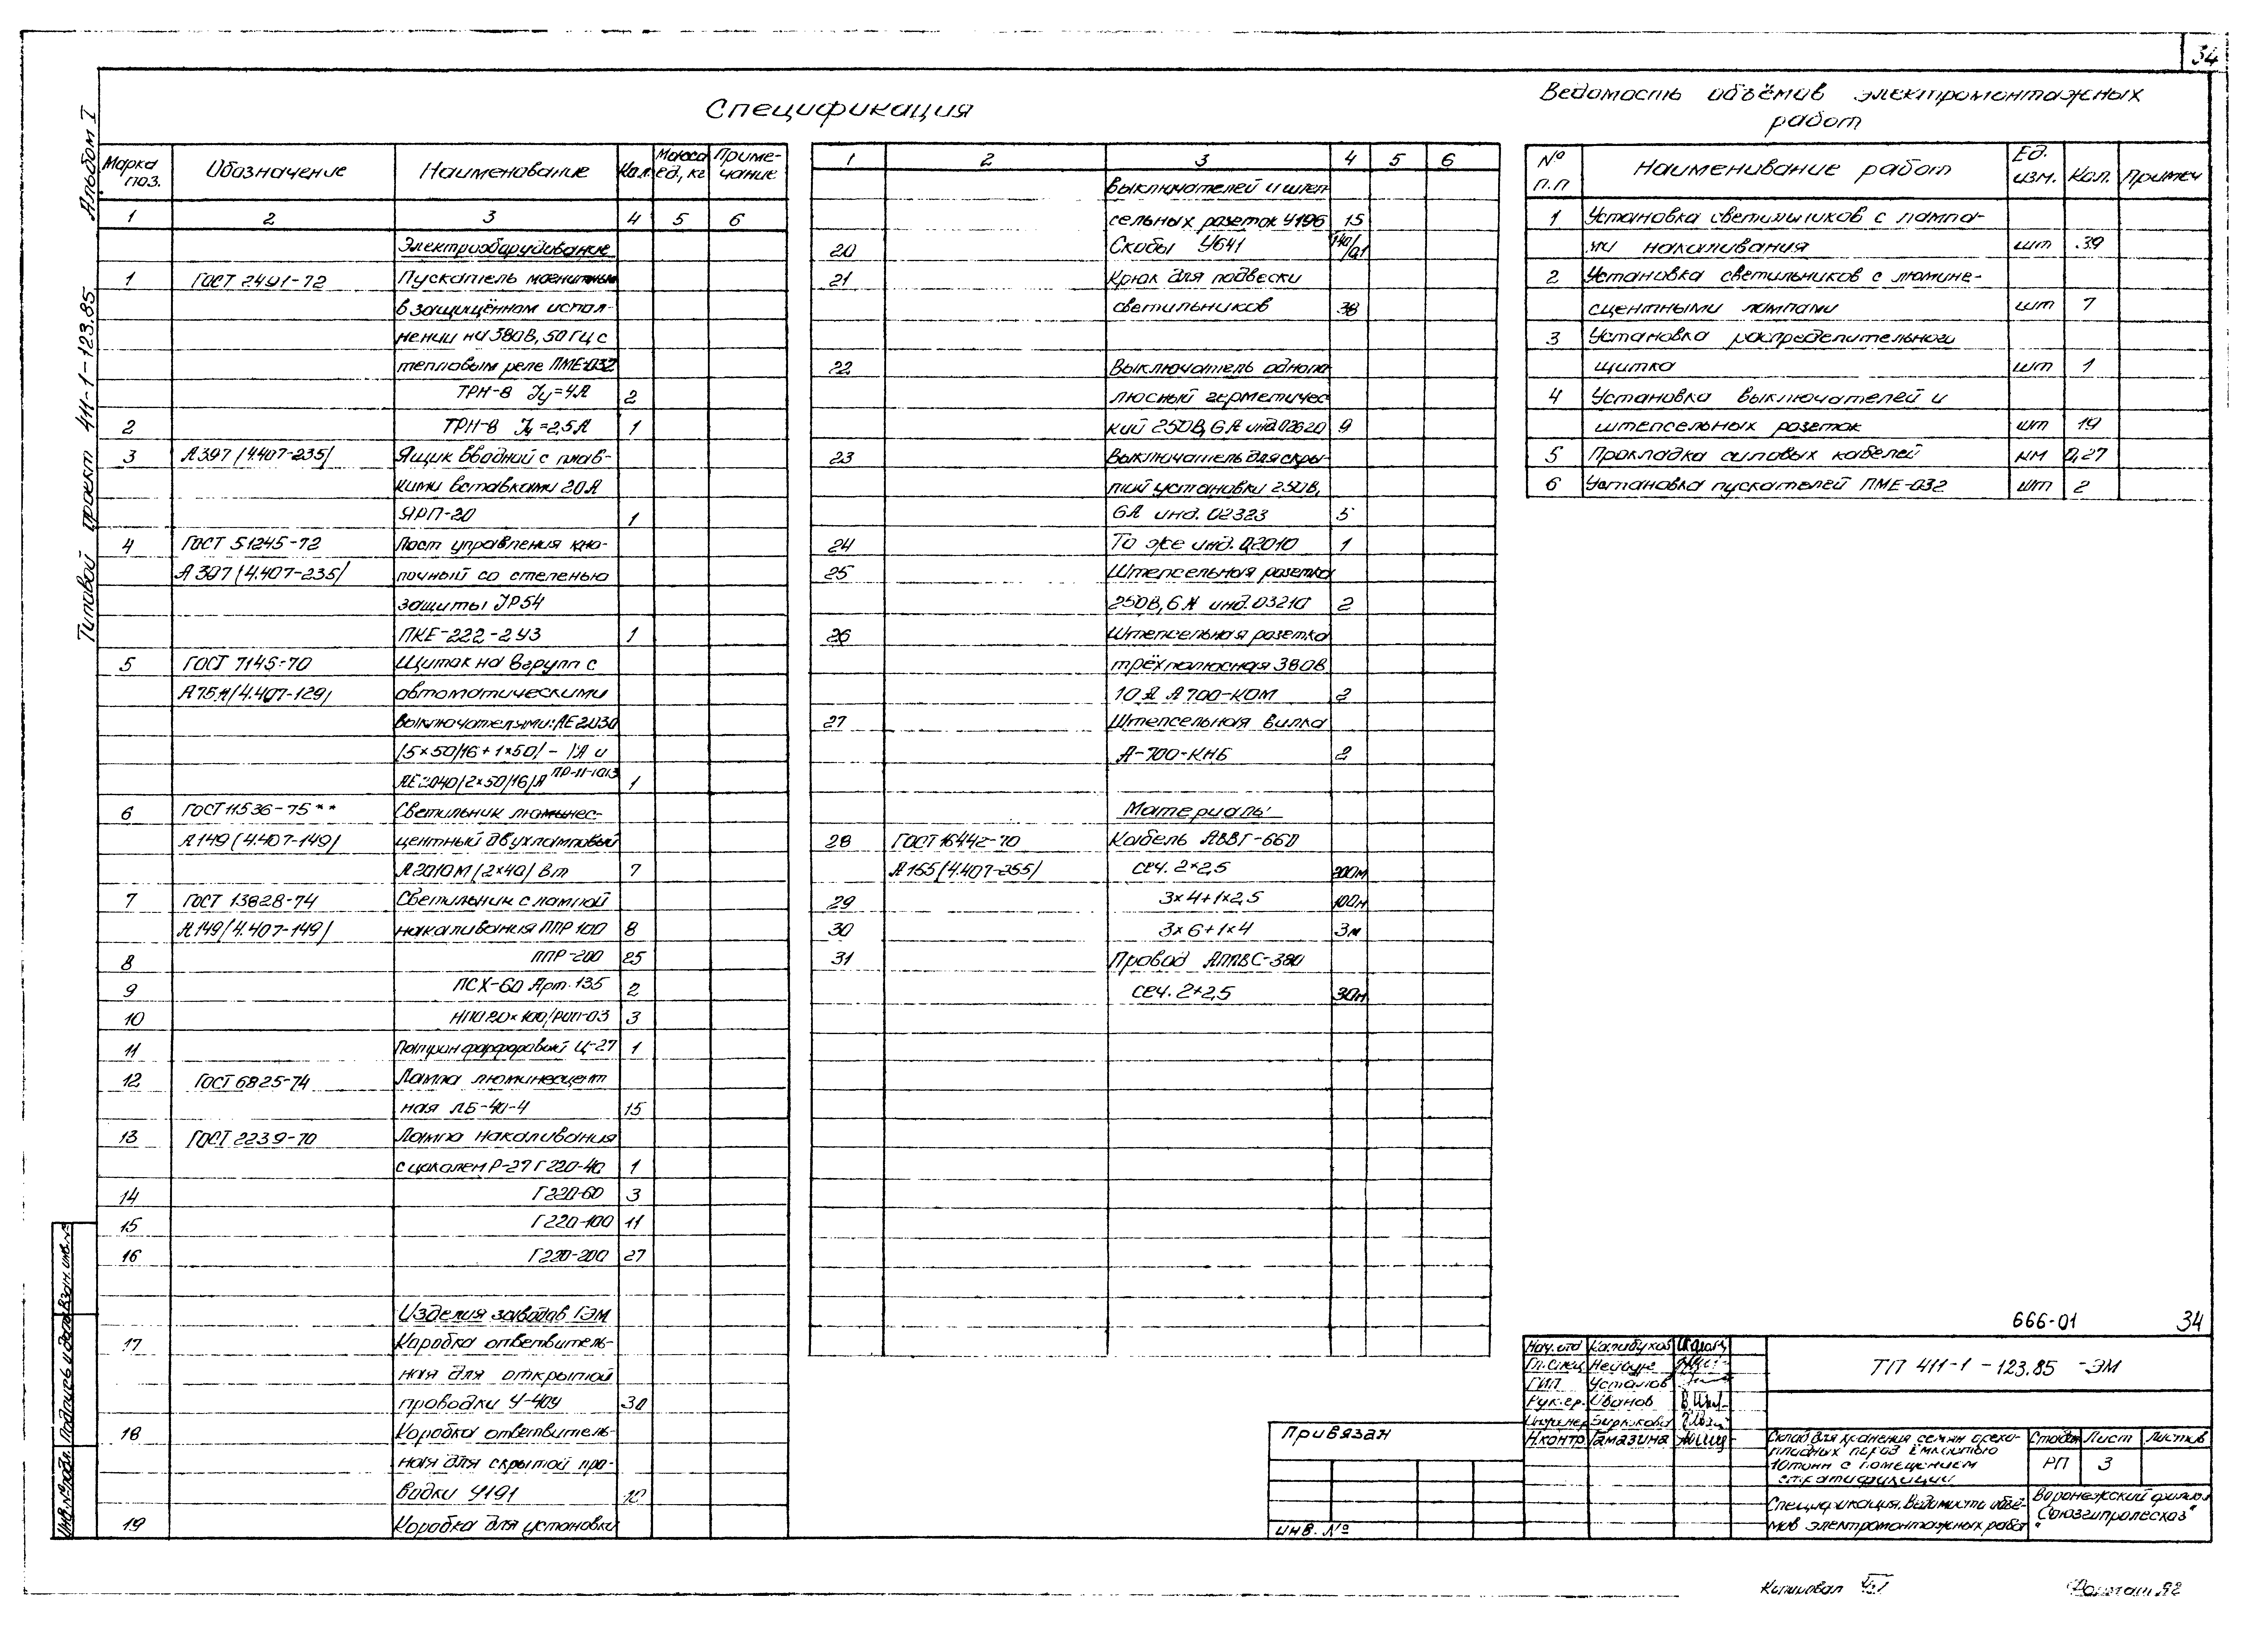 34
Альбом I
Типовой проект 411-1-123.85
Спецификация
Марка поз. Обозначение Наименование Кол. Масса ед, кг Примечание
1 2 3 4 5 6
Электрооборудование
1 ГОСТ 2491-72 Пускатель магнитный
в защищённом испол-
нении на 380В, 50Гц с
тепловым реле ПМЕ-032
ТРН-8 Jу=4А 2
2 ТРН-8 Jу=2,5А 1
3 А397/4.407-235/ Ящик вводной с плав-
кими вставками 20А
ЯРП-20 1
4 ГОСТ 51245-72 Пост управления кно-
А307/4.407-235/ почный со степенью
защиты JP54
ПКЕ-222-2У3 1
5 ГОСТ 7145-70 Щиток на 8групп с
А75А/4.407-129/ автоматическими
выключателями:АЕ2030
/5×50/16+1×50/- А и
АЕ2040/2×50/16/А ПР-11-1013 1
6 ГОСТ11536-75** Светильник люминес-
А149/4.407-149/ центный двухламповый
Л2010М/2×40/Вт 7
7 ГОСТ 13828-74 Светильник с лампой
А149/4.407-149/ накаливания ППР100 8
8 ППР-200 25
9 ПСХ-60 Арт.135 2
10 НПО20×100/РОП-03 3
11 Патрон фарфоровый Ц-27 1
12 ГОСТ6825-74 Лампа люминесцент
ная ЛБ-40-4 15
13 ГОСТ2239-70 Лампа накаливания
с цоколем Р-27 Г220-40 1
14 Г220-60 3
15 Г220-100 11
16 Г220-200 27
Изделия заводов ГЭМ
17 Коробка ответвитель-
ная для открытой
проводки У-409 30
18 Коробка ответвитель-
ная для скрытой про-
водки У191 10
19 Коробка для установки
1 2 3 4 5 6
выключателей и штеп
сельных розеток У196 15
20 Скобы У641 140/0,1
21 Крюк для подвески
светильников 38
22 Выключатель однопо
люсный герметичес
кий 250В,6А инд.02620 9
23 Выключатель для скры-
той установки 250В,
6А инд.02323 5
24 То же инд.02010 1
25 Штепсельная розетка
250В,6А инд.03210 2
26 Штепсельная розетка
трёхполюсная 380В
10А А700-КОМ 2
27 Штепсельная вилка
А-700-КНБ 2
Материалы
28 ГОСТ16442-70 Кабель АВВГ-660
А155/4.407-255/ сеч. 2×2,5 200м
29 3×4+1×2,5 100м
30 3×6+1×4 3м
31 Провод АППВС-380
сеч. 2×2,5 30м
Ведомость объёмов электромонтажных
работ
№ п.п Наименование работ Ед. изм. Кол. Примеч
1 Установка светильников с лампа-
ми накаливания шт 39
2 Установка светильников с люмине-
сцентными лампами шт 7
3 Установка распределительного
щитка шт 1
4 Установка выключателей и
штепсельных розеток шт 19
5 Прокладка силовых кабелей км 0,27
6 Установка пускателей ПМЕ-032 шт 2
666-01 34
Нач.отд Калибухов
Гл.спец Нейвуж
ГИП Усталов
Рук.гр. Иванов
Инженер Зирюкова
Н.контр Тамазина
ТП 411-1-123.85 -ЭМ
Склад для хранения семян орехо-
плодных пород ёмкостью
10тонн с помещением
стратификации
Стадия Лист Листов
РП 3
Спецификация. Ведомость объё-
мов электромонтажных работ
Воронежский филиал
"Союзгипролесхоз"
Привязан
ИНВ. №
Инв.№подл. Подпись и дата Взам.инв.№
Копировал
Формат А2